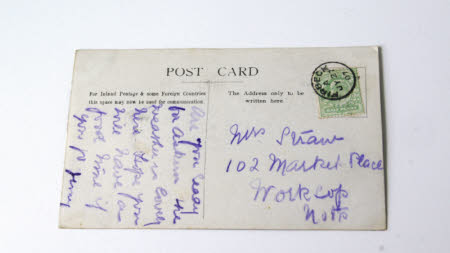 POST CARD
For Inland Postage & some Foreign Countries
this space may now be used for communication.
The Address only to be
written here.
Are you ready
for the
weather lovely
Hope you
will have a
good time if
you go
Mrs
102 Market Place
Worksop
Notts